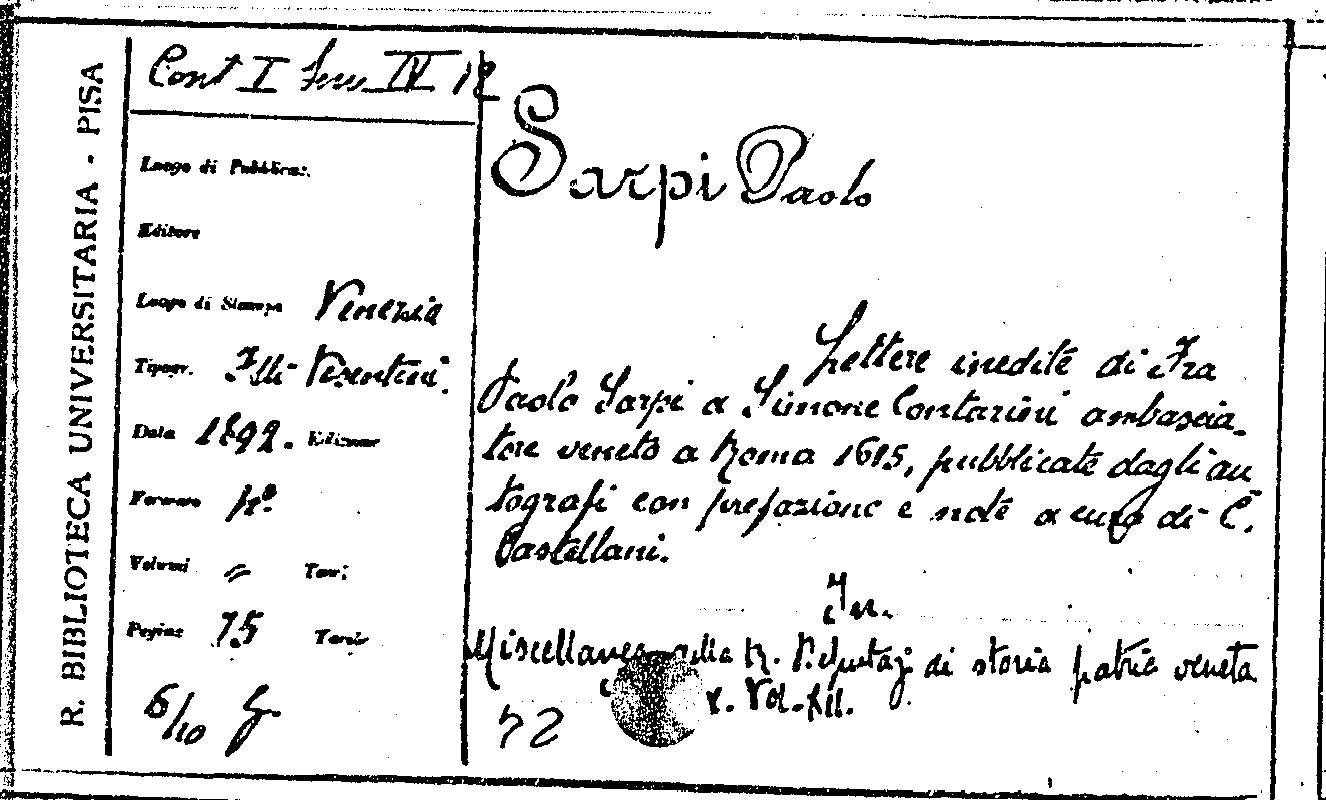 R. BIBLIOTECA UNIVERSITARIA - PISA
Cont I IV 12
Luogo di Pubblicaz.
Editore
Luogo di Stampa Venezia
Tipogr. F.lli Visentini.
Data 1892. Edizione
Formato 4º
Volumi = Tomi
Pagine 75 Tavole
6/10 G.
Sarpi Paolo
Lettere inedite di Fra
Paolo Sarpi a Simone Contarini ambascia-
tore veneto a Roma 1615, pubblicate dagli au
tografi con prefazione e note a cura di C.
Castellani.
In.
Miscellanea della R. Deputaz. di storia patria veneta
Vol. XII.
72